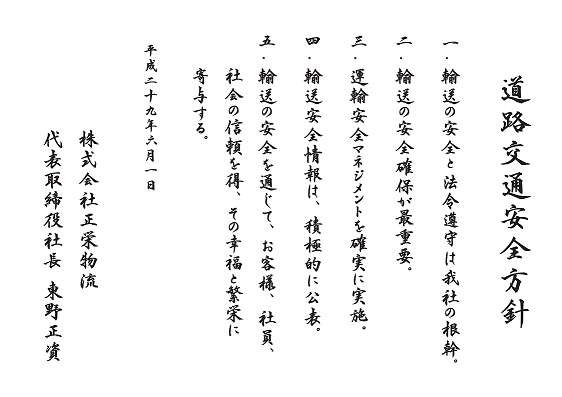 道路交通安全方針
一．輸送の安全と法令遵守は我社の根幹。
二．輸送の安全確保が最重要。
三．運輸安全マネジメントを確実に実施。
四．輸送安全情報は、積極的に公表。
五．輸送の安全を通じて、お客様、社員、
社会の信頼を得、その幸福と繁栄に
寄与する。
平成二十九年六月一日
株式会社正栄物流
代表取締役社長 東野正資